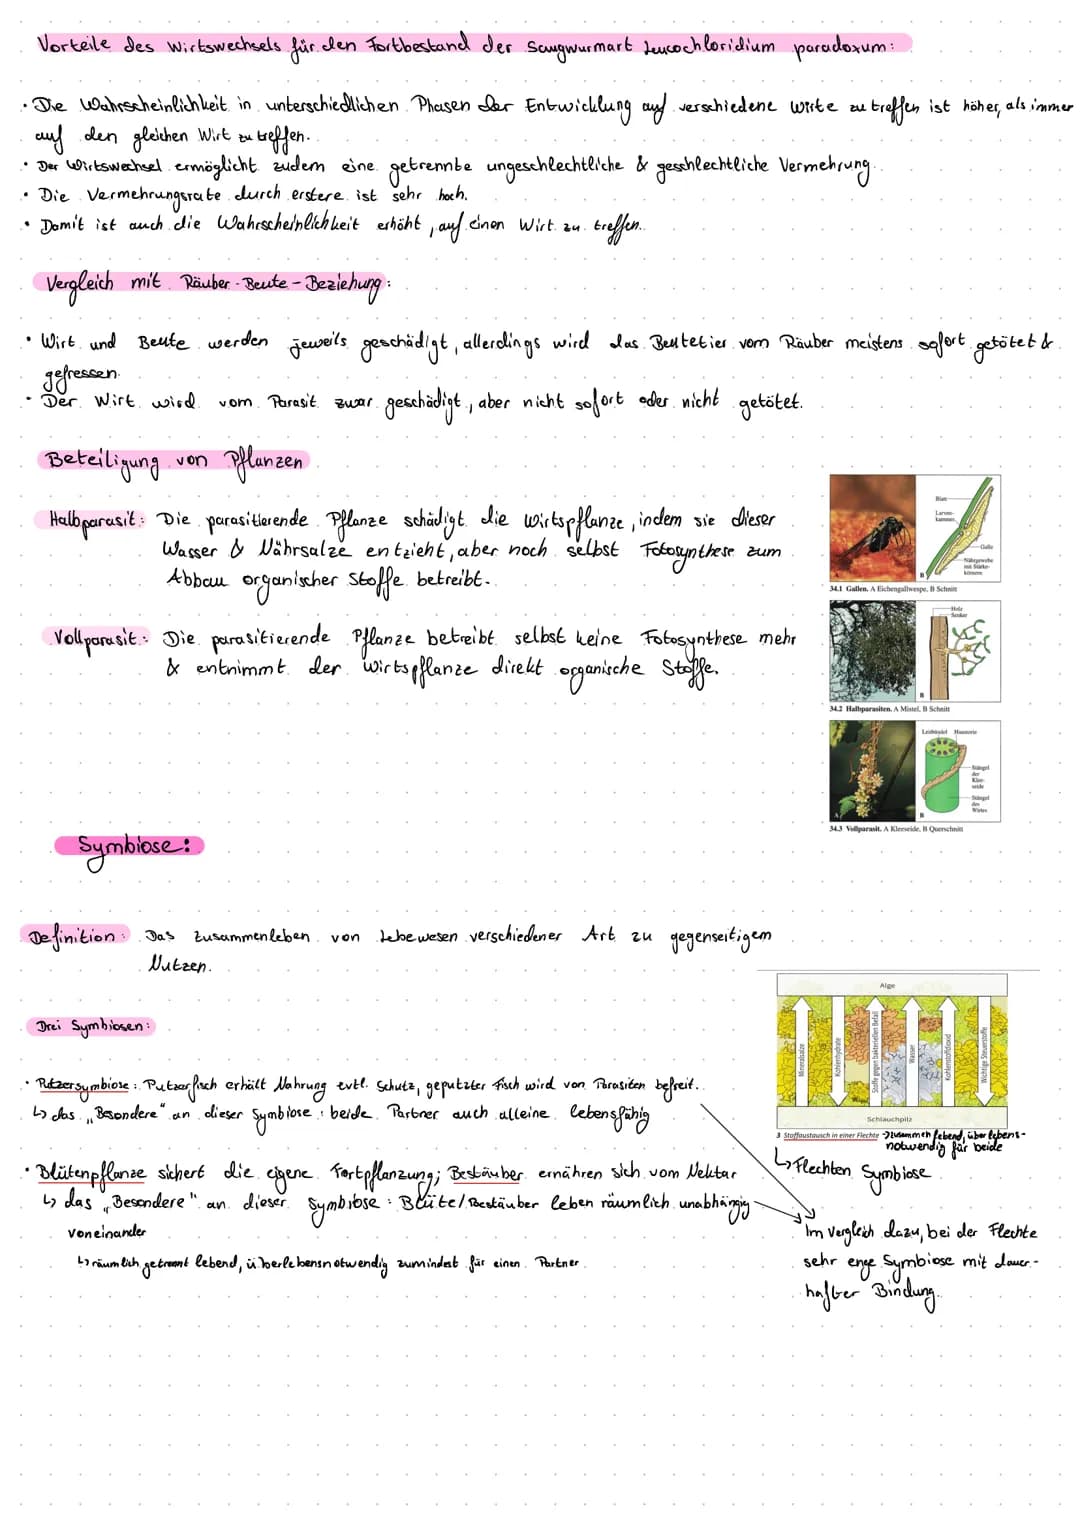 Vorteile des Wirtswechsels für den Fortbestand der Saugwurmart Leucochloridium paradoxum:
• Die Wahrscheinlichkeit in unterschiedlichen Phasen der Entwicklung auf verschiedene Wirte zu treffen ist höher, als immer
auf den gleichen Wirt zu treffen.
• Der Wirtswechsel ermöglicht zudem eine getrennte ungeschlechtliche & geschlechtliche Vermehrung.
• Die Vermehrungsrate durch erstere ist sehr hoch.
• Damit ist auch die Wahrscheinlichkeit erhöht, auf einen Wirt zu treffen.
Vergleich mit Räuber-Beute-Beziehung:
• Wirt und Beute werden jeweils geschädigt, allerdings wird das Beutetier vom Räuber meistens sofort getötet &
gefressen.
• Der Wirt wird vom Parasit zwar geschädigt, aber nicht sofort oder nicht getötet.
Beteiligung von Pflanzen
Halbparasit: Die parasitierende Pflanze schädigt die Wirtspflanze, indem sie dieser
Wasser & Nährsalze entzieht, aber noch selbst Fotosynthese zum
Abbau organischer Stoffe betreibt.
Vollparasit: Die parasitierende Pflanze betreibt selbst keine Fotosynthese mehr
& entnimmt der Wirtspflanze direkt organische Stoffe.
Blatt
Larven-
kammer
Galle
Nährgewebe
mit Stärke-
körnern
A
B
34.1 Gallen. A Eichengallwespe, B Schnitt
Holz
Senker
B
34.2 Halbparasiten. A Mistel, B Schnitt
Leitbündel Haustorie
Stängel
der
Klee-
seide
Stängel
des
Wirtes
A
B
34.3 Vollparasit. A Kleeseide, B Querschnitt
Symbiose:
Definition: Das Zusammenleben von Lebewesen verschiedener Art zu gegenseitigem
Nutzen.
Drei Symbiosen:
• Putzersymbiose: Putzerfisch erhält Nahrung evtl. Schutz, geputzter Fisch wird von Parasiten befreit.
↳ das „Besondere" an dieser Symbiose: beide Partner auch alleine lebensfähig
• Blütenpflanze sichert die eigene Fortpflanzung; Bestäuber ernähren sich vom Nektar
↳ das „Besondere" an dieser Symbiose: Blüte/Bestäuber leben räumlich unabhängig
voneinander
↳ räumlich getrennt lebend, überlebensnotwendig zumindest für einen Partner
Alge
Mineralsalze
Kohlenhydrate
Stoffe gegen bakteriellen Befall
Wasser
Kohlenstoffdioxid
Wichtige Steuerstoffe
Schlauchpilz
3 Stoffaustausch in einer Flechte → zusammen lebend, überlebens-
notwendig für beide
↳ Flechten Symbiose
Im Vergleich dazu, bei der Flechte
sehr enge Symbiose mit dauer-
hafter Bindung.